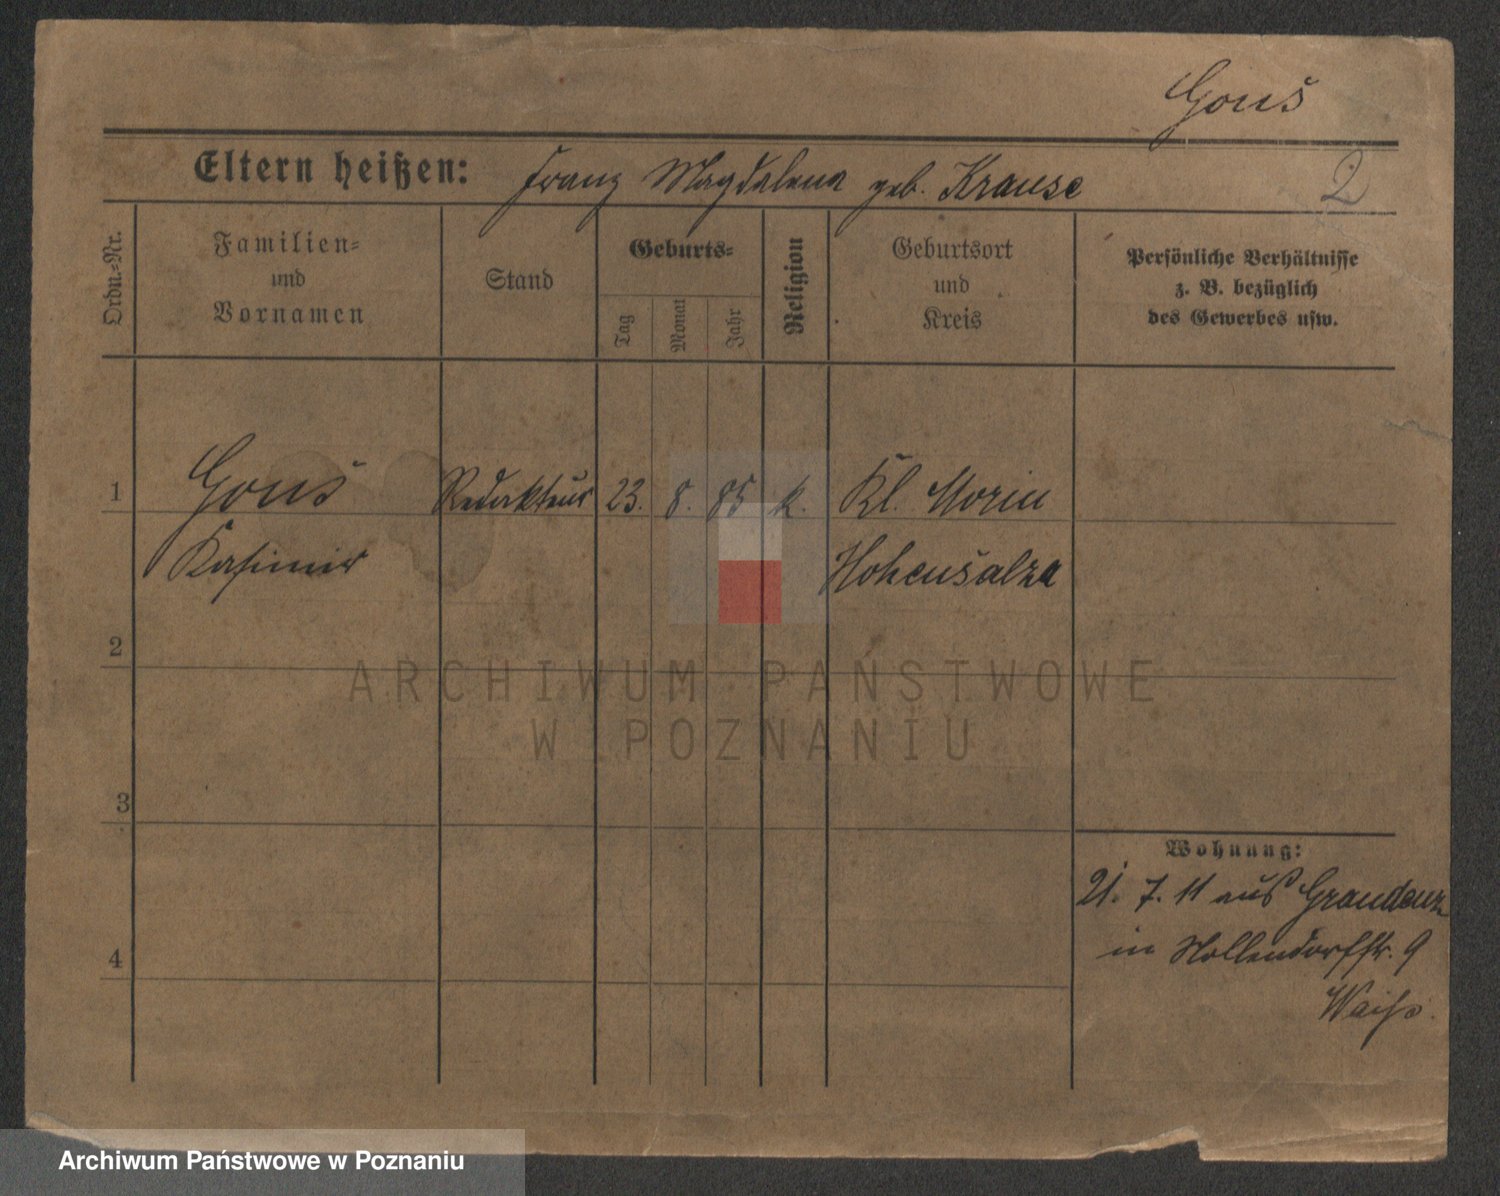 Gouš
Eltern heißen: Franz Magdalena geb. Krause
2
Ordn.-Nr.
Familien- und Vornamen
Stand
Geburts-
Tag
Monat
Jahr
Religion
Geburtsort und Kreis
Persönliche Verhältnisse
z. B. bezüglich
des Gewerbes usw.
1 Gouš Redakteur 23. 8. 85 k. Kl. Morin
Kasimir Hohensalza
2
ARCHIWUM PAŃSTWOWE
W POZNANIU
3
Wohnung:
21. 7. 11 aus Graudenz
4
in Nollendorfstr. 9
Archiwum Państwowe w Poznaniu